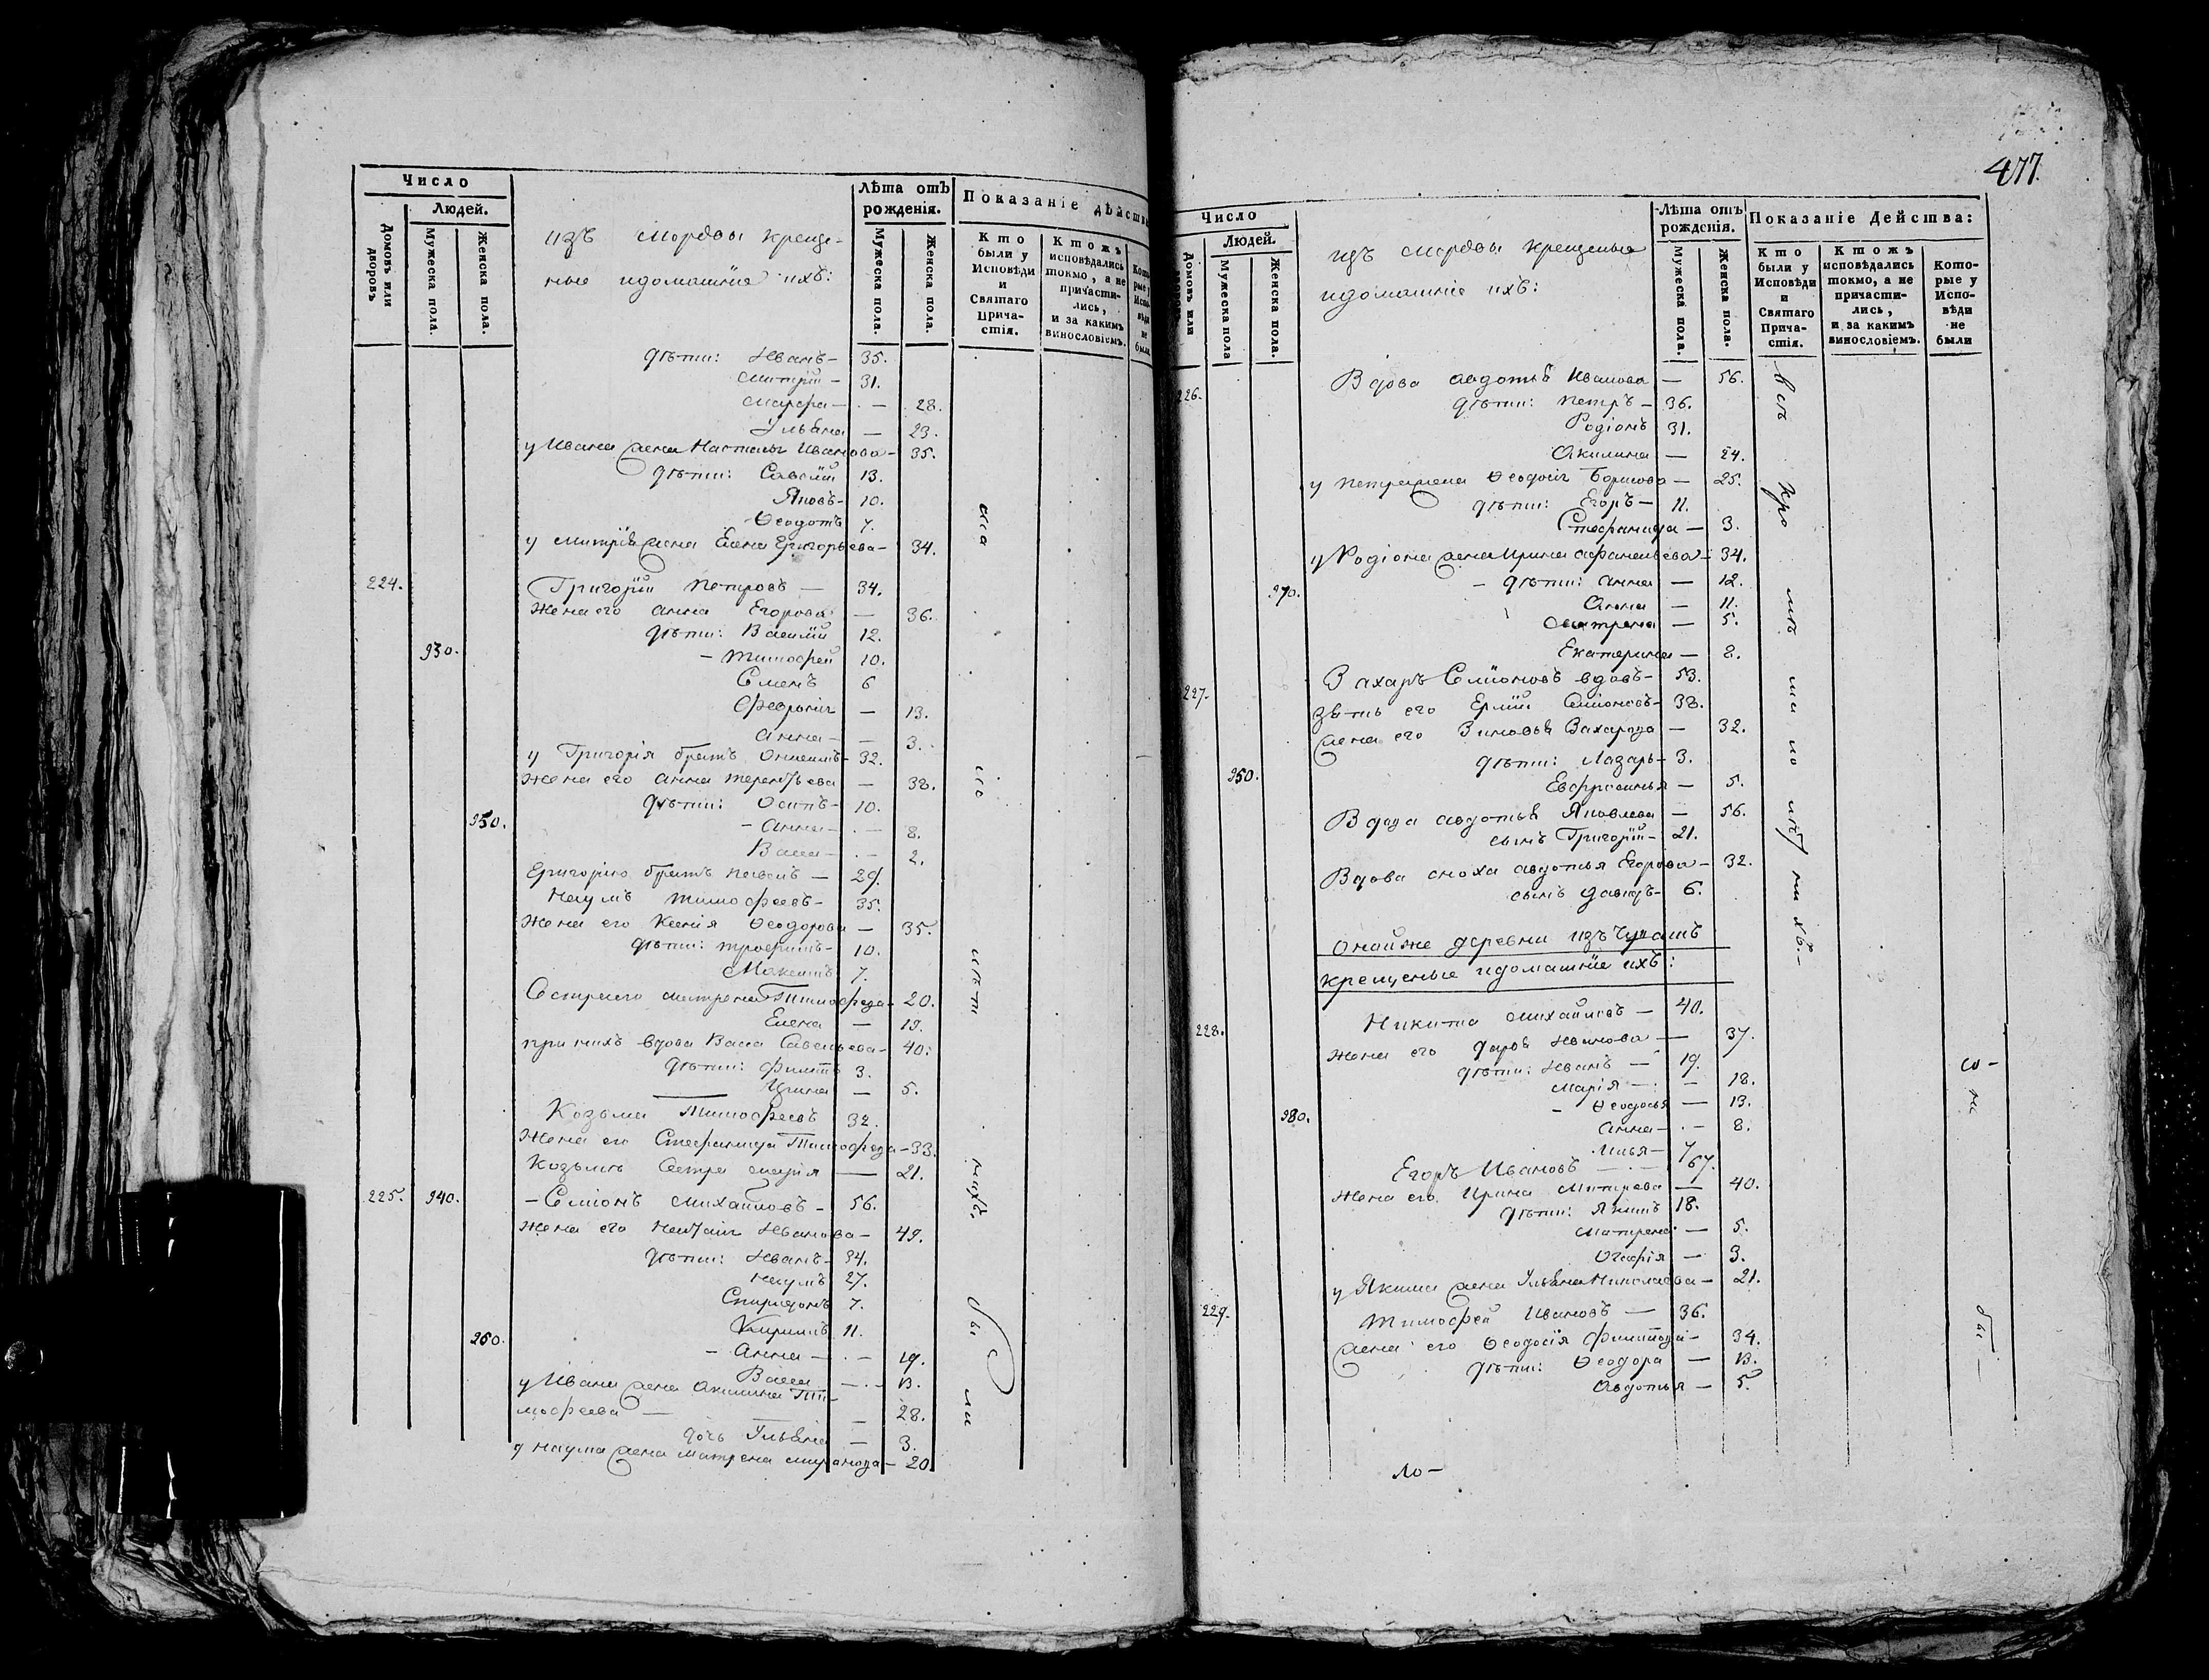 Число
Людей.
Домовъ или дворовъ
Мужеска пола.
Женска пола.
изъ мордвы креще-
ные идомашніе ихъ:
Лѣта отъ рожденія.
Мужеска пола.
Женска пола.
Показаніе дѣйства
Кто были у Исповѣди и Святаго Прича- стія.
Ктожъ исповѣдались токмо, а не причасти- лись, и за какимъ винословіемъ.
дѣти: Иванъ - 35.
Митрій - 31.
Марфа - - 28.
Ульяна - 23.
у Ивана жена Настасья Иванова - 35.
дѣти: Савелій 13.
Яковъ - 10.
Ѳеодотъ 7.
у Митрія жена Елена Григорьева - 34.
224. Григорій Петровъ - 34.
Жена его Анна Егорова - 36.
дѣти: Василій 12.
930. - Тимофей 10.
Семенъ 6
Февронія - 13.
Анна - - 3.
у Григорія братъ Онисимъ - 32.
Жена его Анна Терентьева - 38.
дѣти: Осипъ - 10.
950. - Анна - - 8.
Васса - - 2.
Григорію братъ - 29.
Наумъ Тимофеевъ - 35.
Жена его Ксенія Ѳеодорова - 35.
дѣти: Трофимъ - 10.
Максимъ 7.
Сестры его Матрена Тимофеева - 20.
Елена - 19.
при нихъ вдова Васса Савельева - 40.
дѣти: Филипъ 3.
Ирина - 5.
Козьма Тимофеевъ 32.
Жена его Стефанида Тимофеева - 33.
Козьмы Сестра Марія - 21.
225. 940. - Семіонъ Михайловъ - 56.
Жена его Иванова - 49.
дѣти: Иванъ - 34.
Наумъ 27.
Спиридонъ 7.
Кирилъ 11.
960. - Анна - - 19.
Васса - - 13.
у Ивана жена Акилина Ти-
мофеева - - 28.
дочь Ульяна - 3.
у Наума жена Матрена - 20
были
477.
Число
Людей.
Домовъ или
Мужеска пола
Женска пола.
изъ мордвы крещеные
идомашніе ихъ:
Лѣта отъ рожденія.
Мужеска пола.
Женска пола.
Показаніе Действа:
Кто были у Исповѣди и Святаго Прича- стія.
Ктожъ исповѣдались токмо, а не причасти- лись, и за какимъ винословіемъ.
Кото- рые у Испо- вѣди не были
226. Вдова Авдотья Иванова - 56.
дѣти: Петръ - 36.
Родіонъ 31.
Акилина - 24.
у Петра жена Ѳеодосія Борисова - 25.
дѣти: Егоръ - 11.
Стефанида - 3.
у Родіона жена Ирина Афанасьева - 34.
970. - дѣти: Анна - 12.
Анна - 11.
Матрена - 5.
Екатерина - 2.
227. Захаръ Семіоновъ вдовъ - 53.
Зять его Ермій Семіоновъ - 38.
жена его Зиновья Захарова - 32.
950. дѣти: Лазарь - 3.
Евфросинья - 5.
Вдова Авдотья Яковлева - 56.
сынъ Григорій - 21.
Вдова сноха Авдотья Егорова - 32.
сынъ Давидъ - 6.
Оной же деревни изъ Чувашъ
крещеные идомашніе ихъ:
228. Никита Михайловъ - 40.
Жена его Дарья Иванова - 37.
дѣти: Иванъ - 19.
Марія - - 18.
980. - Ѳеодосья - 13.
Анна - - 8.
Илья - 7
Егоръ Ивановъ - - 67.
Жена его Ирина Митрева - 40.
дѣти: Якимъ 18.
Матрена - 5.
Агафія - 3.
у Якима жена Ульяна Николаева - 21.
229. Тимофей Ивановъ - 36.
жена его Ѳеодосія Филипова - 34.
дѣти: Ѳеодора - 13.
Авдотья - 5.